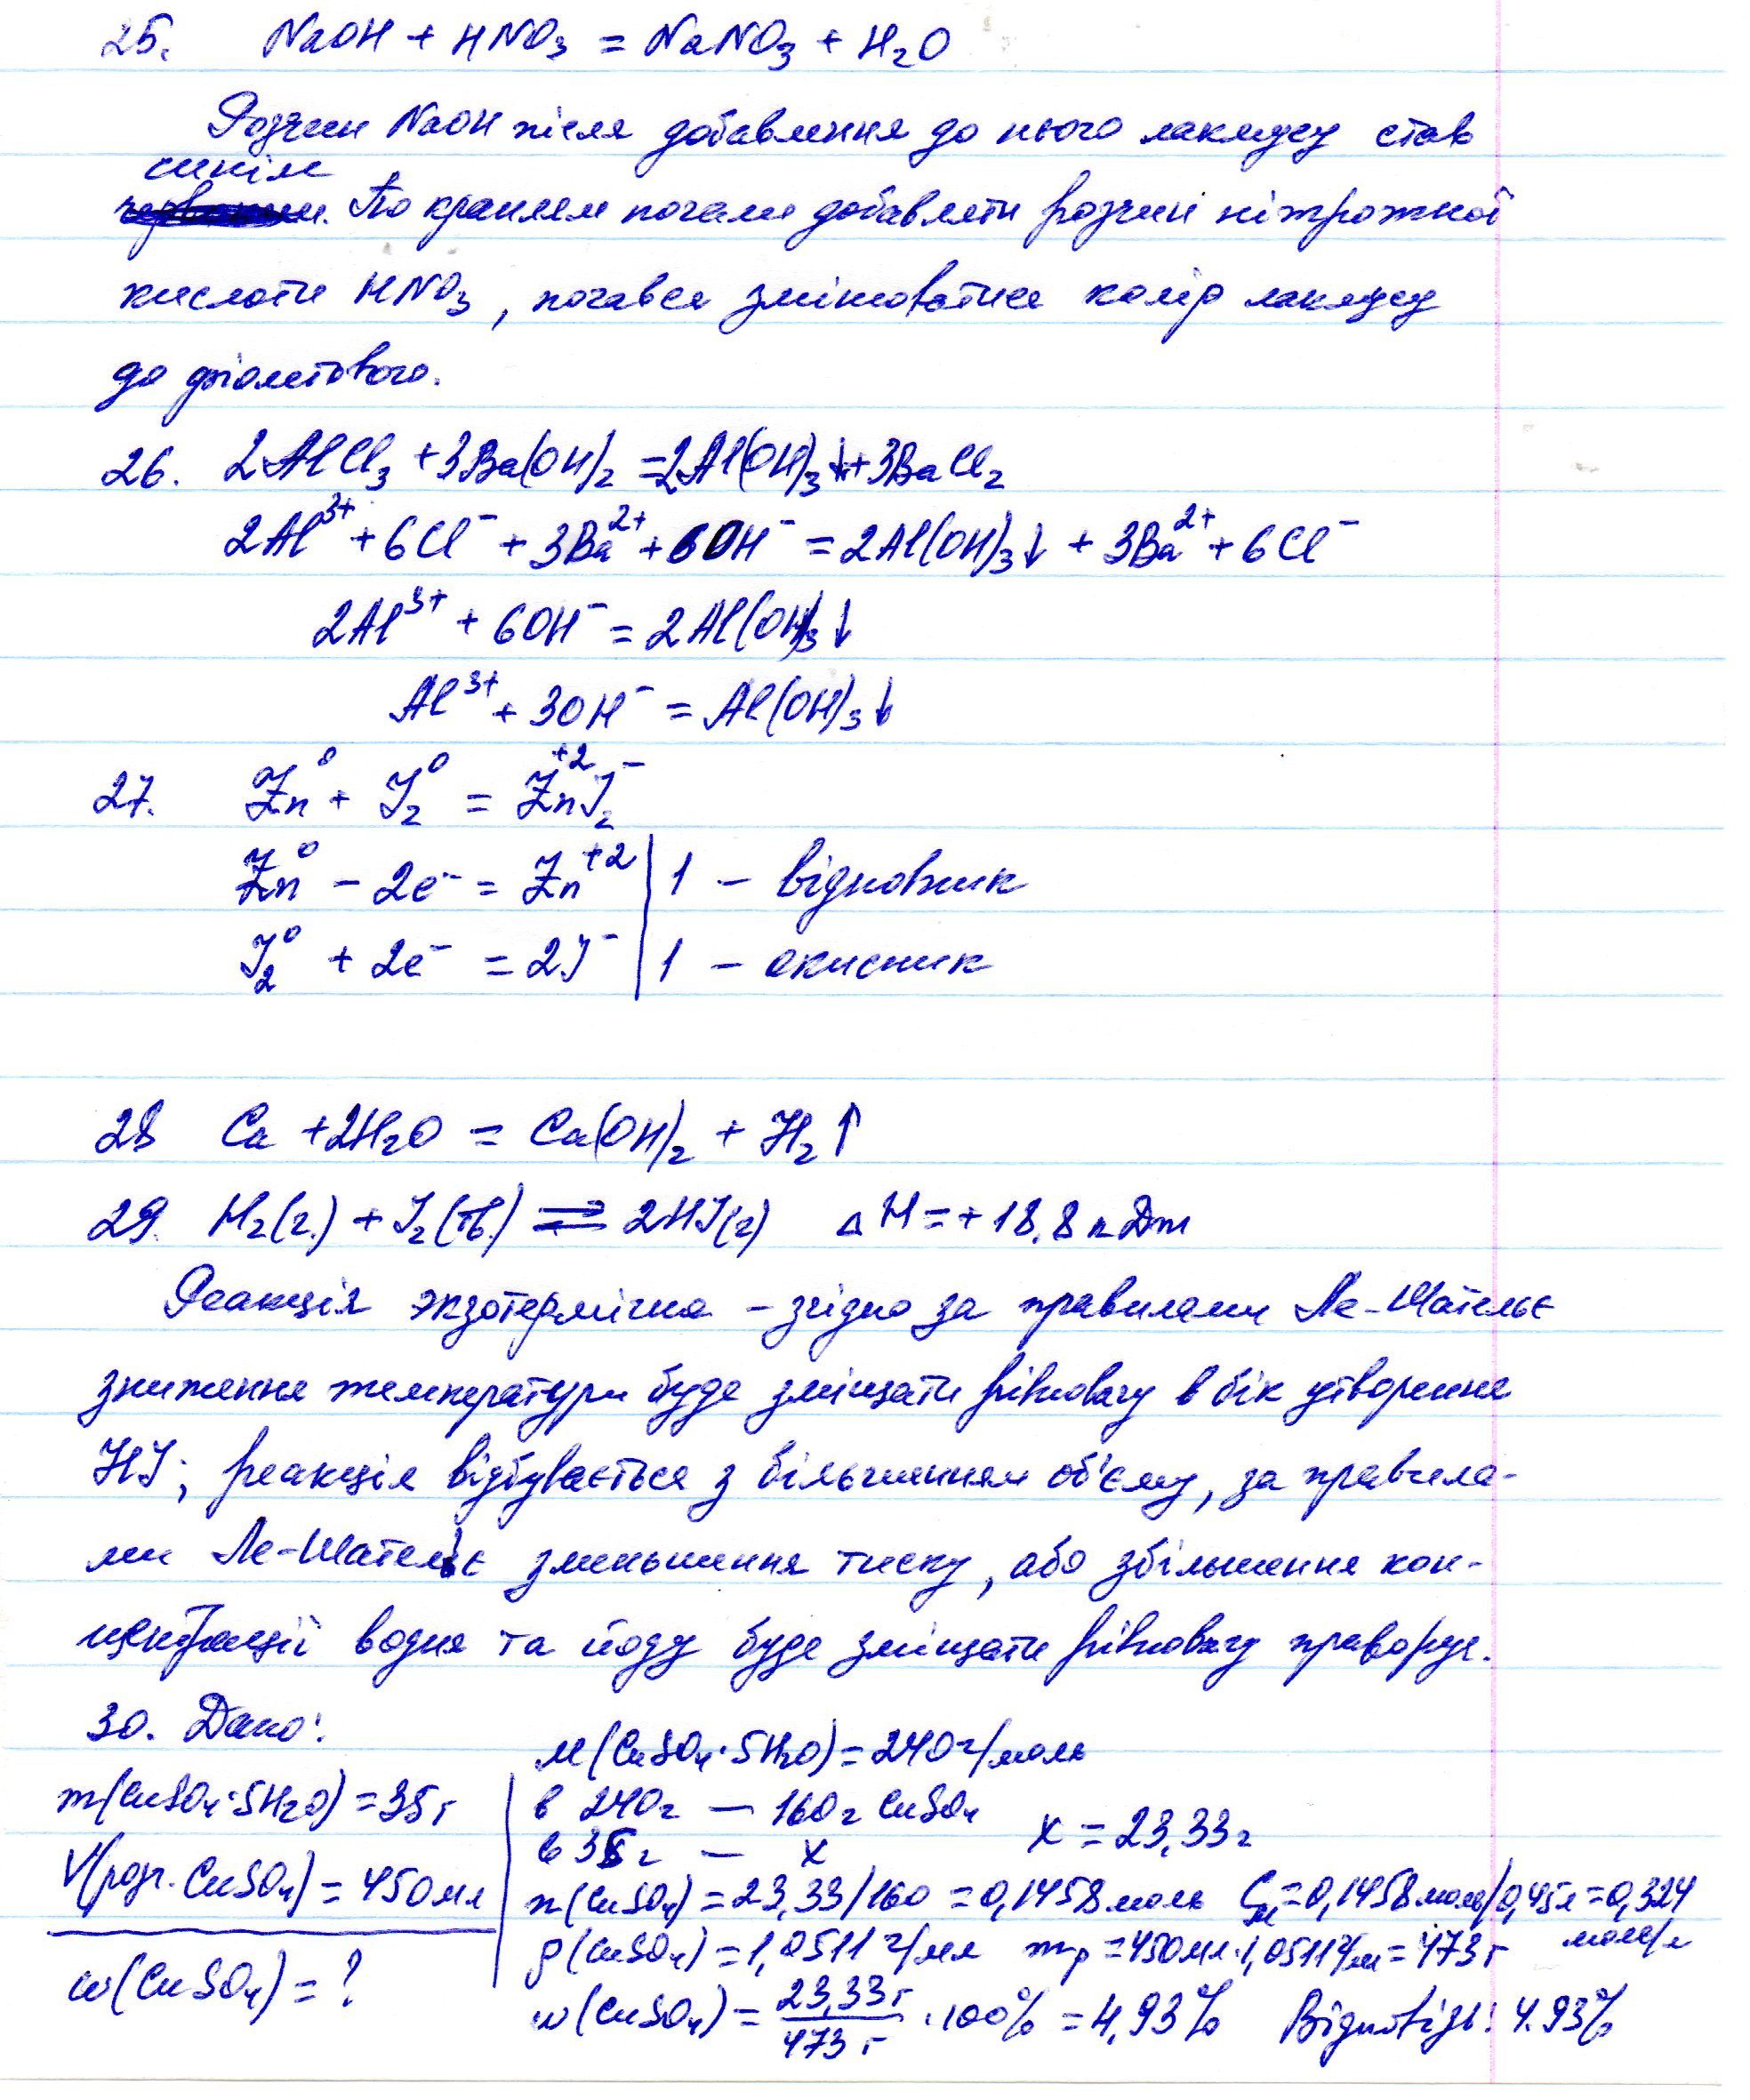 25. NaOH + HNO₃ = NaNO₃ + H₂O
Розчин NaOH після добавлення до нього лакмусу став
синім
По краплям почали добавляти розчин нітротної
кислоти HNO₃, почався змінюватися колір лакмусу
до фіолетового.
26. 2AlCl₃ + 3Ba(OH)₂ = 2Al(OH)₃↓ + 3BaCl₂
2Al³⁺ + 6Cl⁻ + 3Ba²⁺ + 6OH⁻ = 2Al(OH)₃↓ + 3Ba²⁺ + 6Cl⁻
2Al³⁺ + 6OH⁻ = 2Al(OH)₃↓
Al³⁺ + 3OH⁻ = Al(OH)₃↓
27. Zn⁰ + J₂⁰ = Zn⁺²J₂⁻
Zn⁰ − 2e⁻ = Zn⁺² | 1 − відновник
J₂⁰ + 2e⁻ = 2J⁻ | 1 − окисник
28 Ca + 2H₂O = Ca(OH)₂ + H₂↑
29. H₂(г.) + J₂(тв.) ⇄ 2HJ(г) ΔH = +18,8 кДж
Реакція экзотермічна – згідно за правилами Ле-Шательє
зниження температури буде зміщати рівновагу в бік утворення
HJ; реакція відбувається з більшенням об'єму, за правила-
ми Ле-Шательє зменьшення тиску, або збільшення кон-
центрації водня та йоду буде зміщати рівновагу праворуч.
30. Дано:
M(CuSO₄·5H₂O) = 240 г/моль
m(CuSO₄·5H₂O) = 35 г
в 240 г — 160 г CuSO₄
в 35 г — x x = 23,33 г
V(розч. CuSO₄) = 450 мл
n(CuSO₄) = 23,33/160 = 0,1458 моль Cм = 0,1458 моль/0,45 л = 0,324 моль/л
ρ(CuSO₄) = 1,0511 г/мл mр = 450 мл·1,0511 г/мл = 473 г
w(CuSO₄) = ?
w(CuSO₄) = 23,33 г/473 г · 100% = 4,93% Відповідь: 4.93%